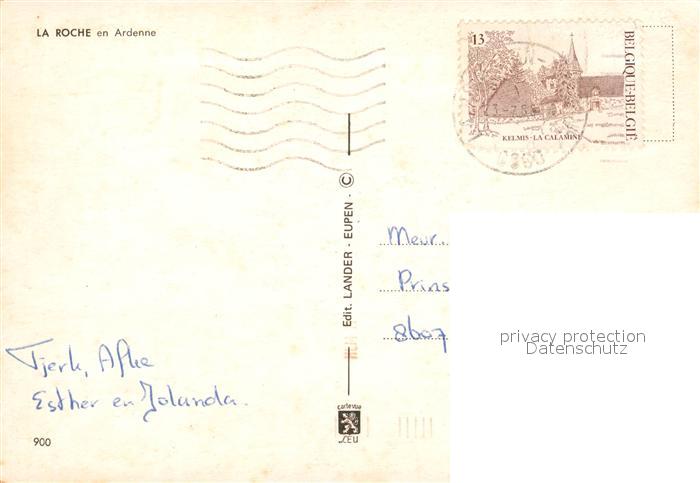 LA ROCHE en Ardenne
13
BELGIQUE-BELGIË
KELMIS - LA CALAMINE
Edit. LANDER - EUPEN - ©
Mevr.
Prins
8607
privacy protection
Datenschutz
Tjerk, Afke
Esther en Jolanda.
cartevue
900